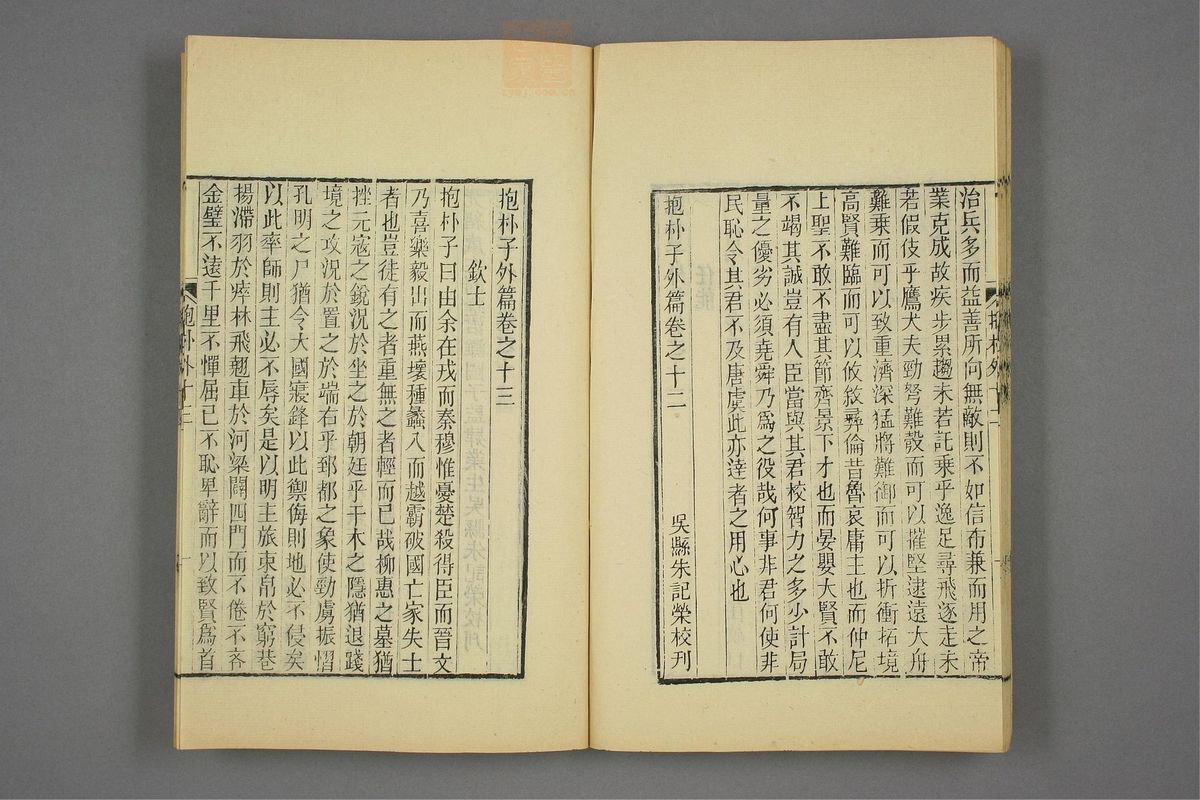 治兵多而益善所向無敵則不如信布兼而用之帝
業克成故疾步累趨未若託乘乎逸足尋飛逐走未
若假伎乎鷹犬夫勁弩難彀而可以摧堅逮遠大舟
難乘而可以致重濟深猛將難御而可以折衝拓境
高賢難臨而可以攸敘彞倫昔魯哀庸主也而仲尼
上聖不敢不盡其節齊景下才也而晏嬰大賢不敢
不竭其誠豈有人臣當與其君校智力之多少計局
量之優劣必須堯舜乃爲之役哉何事非君何使非
民恥令其君不及唐虞此亦達者之用心也
抱朴子外篇卷之十二
吳縣朱記榮校刋
抱朴外十二
抱朴子外篇卷之十三
欽士
抱朴子曰由余在戎而秦穆惟憂楚殺得臣而晉文
乃喜樂毅出而燕壞種蠡入而越霸破國亡家失士
者也豈徒有之者重無之者輕而已哉柳惠之墓猶
挫元寇之銳況於坐之於朝廷乎干木之隱猶退踐
境之攻況於置之於端右乎郅都之象使勁虜振慴
孔明之尸猶令大國寢鋒以此禦侮則地必不侵矣
以此率師則主必不辱矣是以明主旅束帛於窮巷
揚滯羽於瘁林飛翹車於河梁闢四門而不倦不吝
金璧不遠千里不憚屈己不恥卑辭而以致賢爲首
抱朴外十三
一